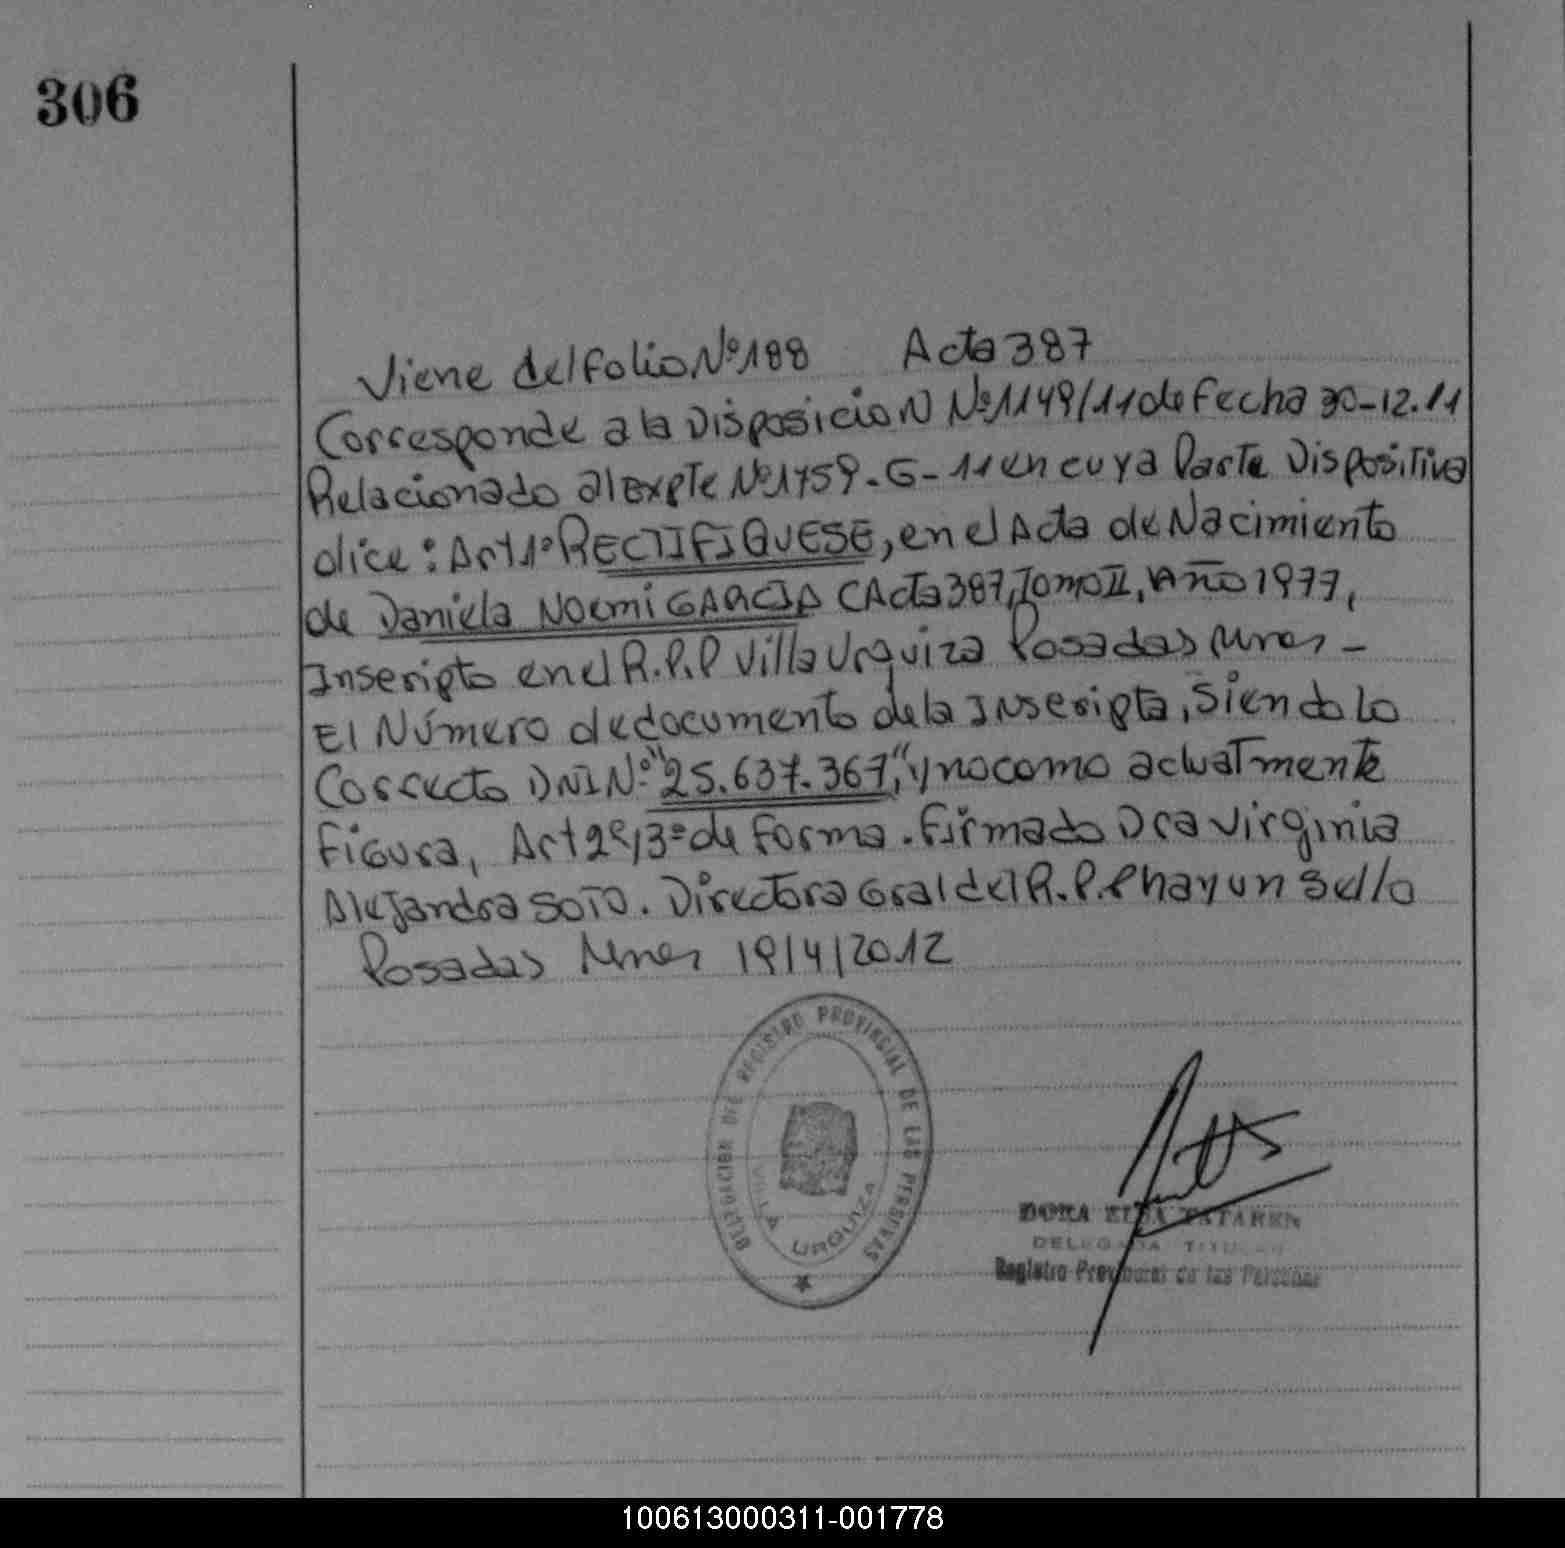 306
Viene del folio Nº 188 Acta 387
Corresponde a la Disposicion Nº 1149/11 de fecha 30-12.11
Relacionado al expte Nº 1759-G-11 en cuya Parte Dispositiva
dice: Art 1º RECTIFIQUESE, en el Acta de Nacimiento
de Daniela Noemi GARCIA (Acta 387, Tomo II, Año 1977,
Inscripto en el R.P.P Villa Urquiza Posadas Mnes -
El Número de documento de la Inscripta, siendo lo
Correcto DNI Nº "25.637.367", y no como actualmente
figura, Art 2º, 3º de forma. Firmado Dra Virginia
Alejandra SOTO. Directora Gral del R.P.P hay un sello
Posadas Mnes 19/4/2012
DELEGACION DEL REGISTRO PROVINCIAL DE LAS PERSONAS
VILLA URQUIZA
DORA ELSA TATAREN
DELEGADA TITULAR
Registro Provincial de las Personas
100613000311-001778